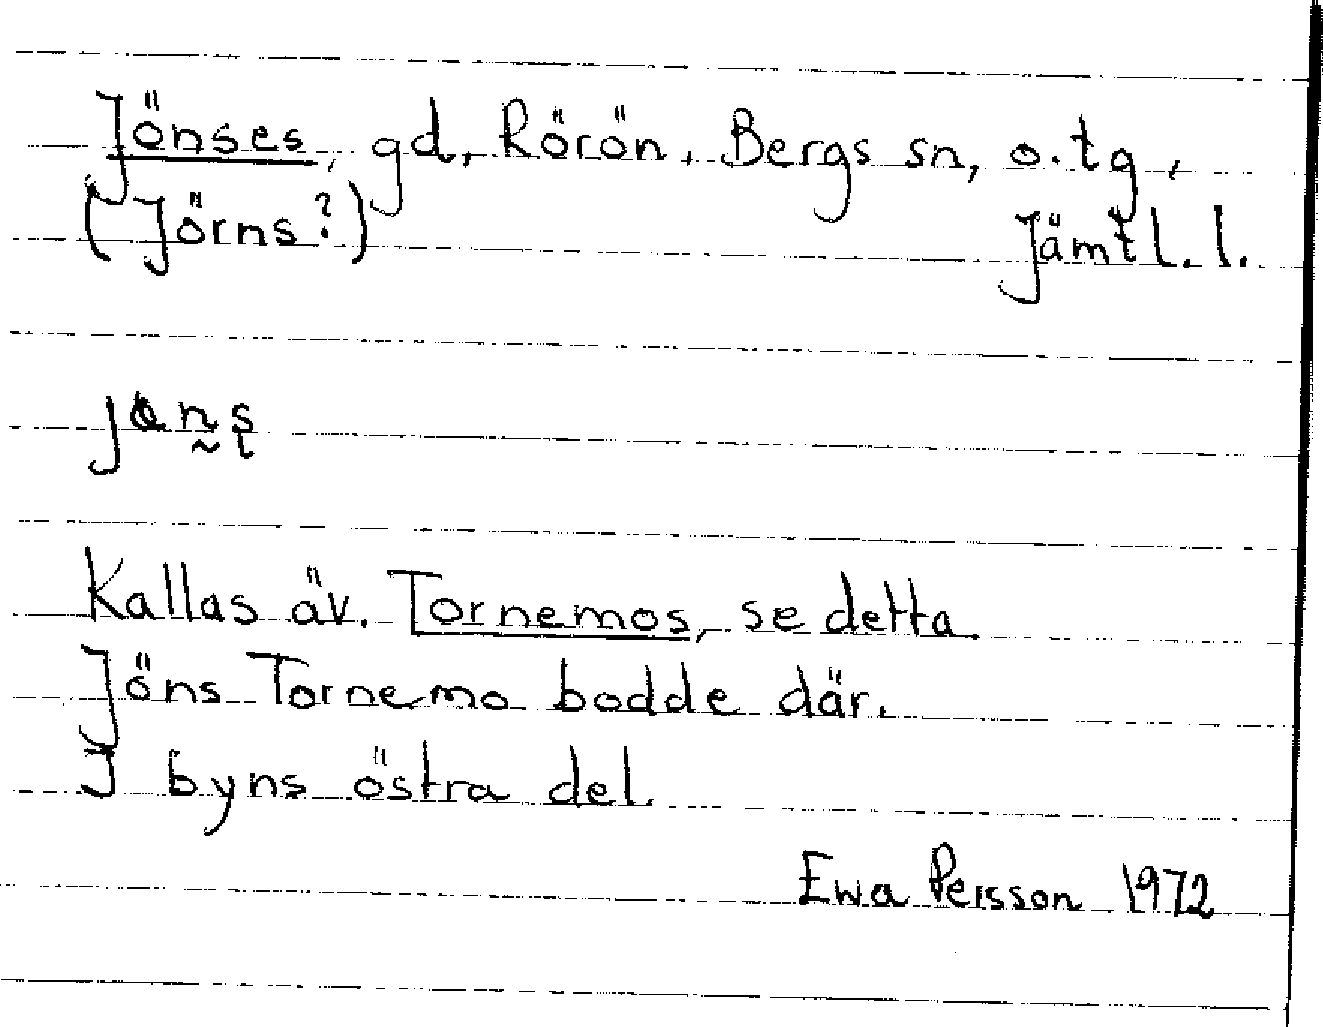 Jönses, gd, Rörön, Bergs sn, o. tg,
(Jörns?) Jämtl. l.
Kallas äv. Tornemos, se detta.
Jöns Tornemo bodde där.
I byns östra del.
Ewa Persson 1972